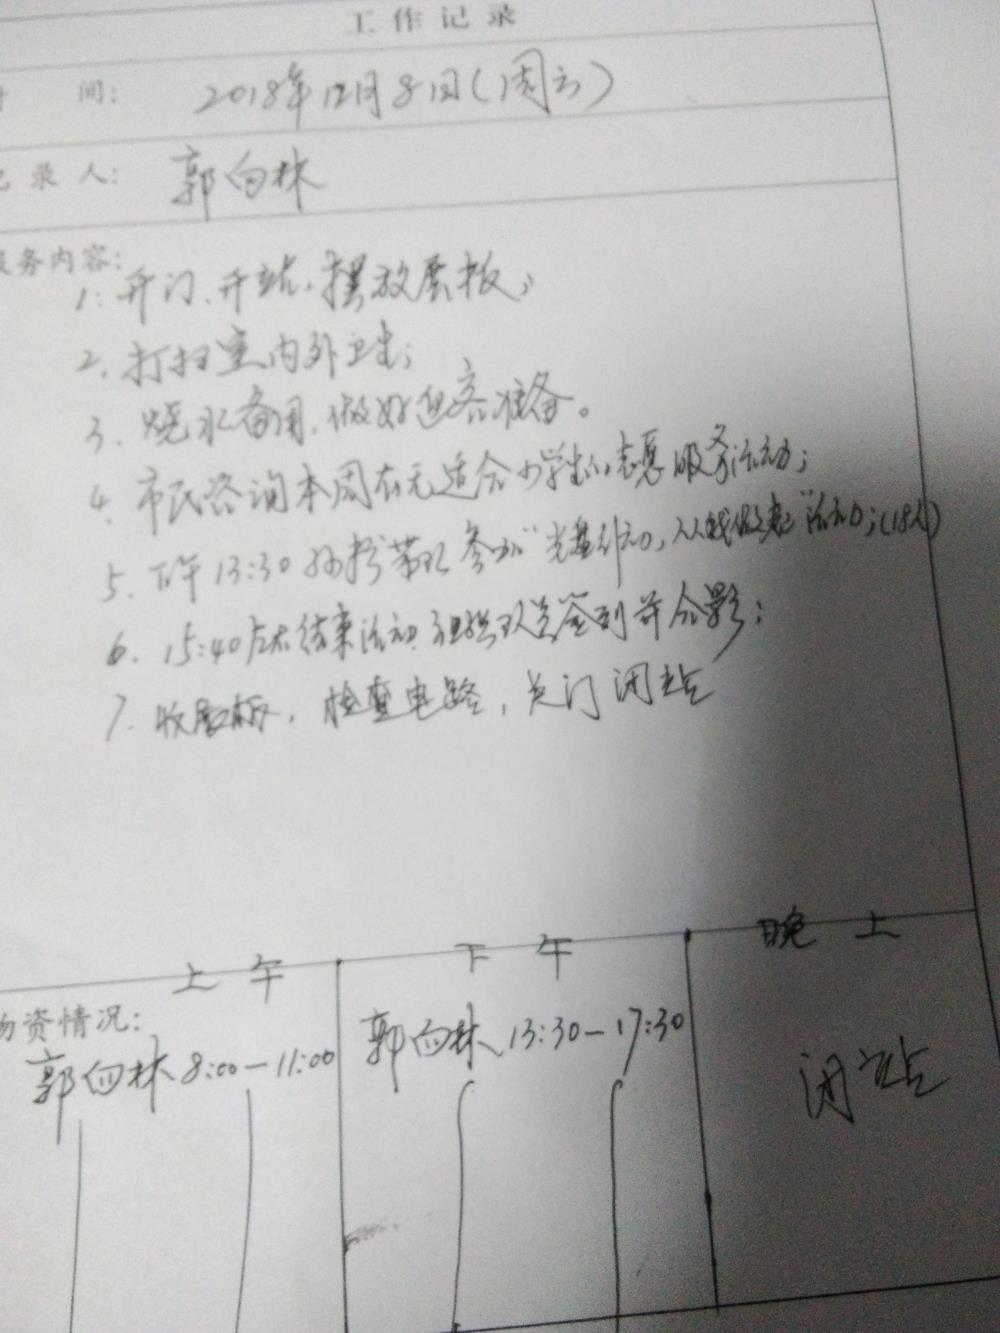 工作记录
时间: 2018年12月8日(周六)
记录人: 郭向林
服务内容:
1. 开门、开站,摆放展板;
2. 打扫室内外卫生;
3. 烧水备用,做好迎客准备。
4. 市民咨询本周有无适合小学生的志愿服务活动;
5. 下午13:30 带队参加"光盘行动,人人我做起"活动;(18人)
6. 15:40左右结束活动,组织队员签到并合影;
7. 收展板,检查电路,关门闭站
上午 下午 晚上
物资情况:
郭向林 8:00—11:00 郭向林 13:30—17:30 闭站